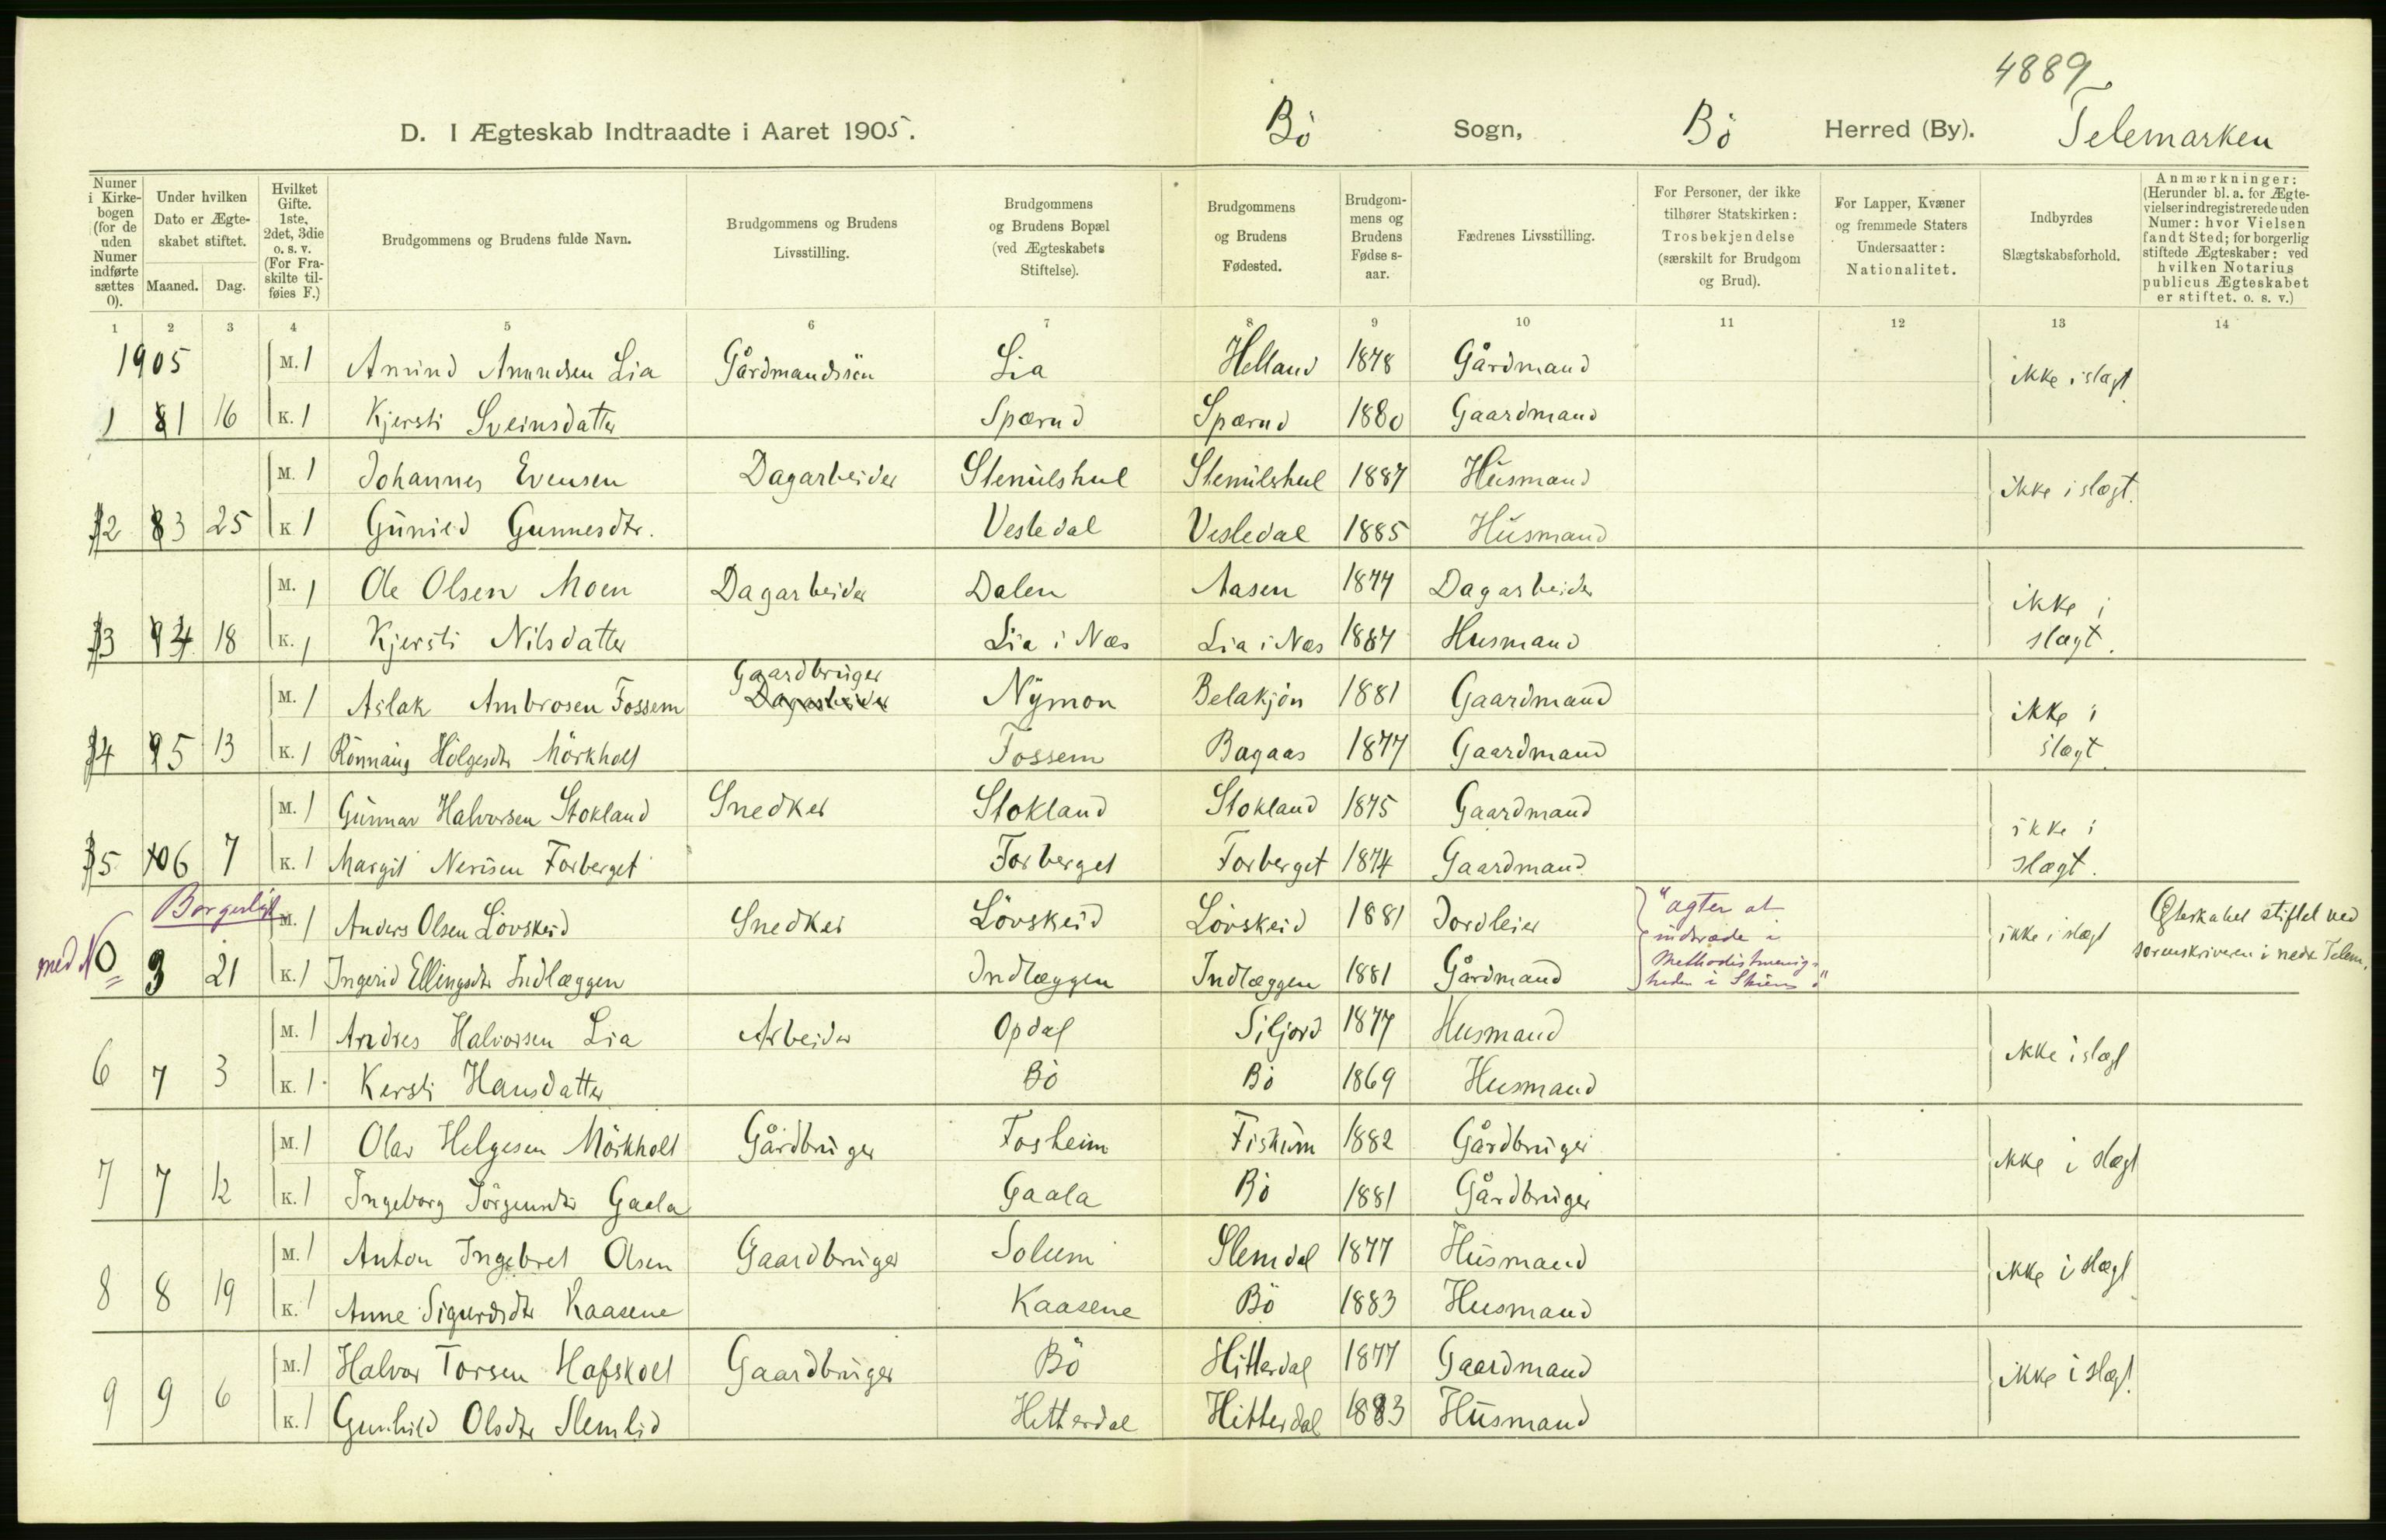 4889
D. I Ægteskab Indtraadte i Aaret 1905. Bö Sogn, Bö Herred (By). Telemarken
Numer i Kirkebogen (for de uden Numer indførte sættes 0).
Under hvilken Dato er Ægteskabet stiftet.
Maaned. Dag.
Hvilket Gifte. 1ste, 2det, 3die o. s. v. (For Fraskilte tilføies F.)
Brudgommens og Brudens fulde Navn.
Brudgommens og Brudens Livsstilling.
Brudgommens og Brudens Bopæl (ved Ægteskabets Stiftelse).
Brudgommens og Brudens Fødested.
Brudgommens og Brudens Fødselsaar.
Fædrenes Livsstilling.
For Personer, der ikke tilhører Statskirken: Trosbekjendelse (særskilt for Brudgom og Brud).
For Lapper, Kvæner og fremmede Staters Undersaatter: Nationalitet.
Indbyrdes Slægtskabsforhold.
Anmærkninger: (Herunder bl. a. for Ægtevielser indregistrerede uden Numer: hvor Vielsen fandt Sted; for borgerlig stiftede Ægteskaber: ved hvilken Notarius publicus Ægteskabet er stiftet. o. s. v.)
1 2 3 4 5 6 7 8 9 10 11 12 13 14
1905 M. 1 Amund Amundsen Lia Gårdmandssön Lia Helland 1878 Gårdmand ikke i slægt
1 1 16 K. 1 Kjersti Sveinsdatter Spærud Spærud 1880 Gaardmand
M. 1 Johannes Evensen Dagarbeider Stenulshul Stenulshul 1887 Husmand ikke i slægt.
2 3 25 K 1 Gunild Gunnesdtr. Vesledal Vesledal 1885 Husmand
M. 1 Ole Olsen Moen Dagarbeider Dalen Aasen 1877 Dagarbeider ikke i
3 4 18 K. 1 Kjersti Nilsdatter Lia i Næs Lia i Næs 1887 Husmand slægt.
Gaardbruger
M. 1 Aslak Ambrosen Fossem Dagarbeider Nymon Belakjön 1881 Gaardmand ikke i
4 5 13 K. 1 Rönnaug Holgesdtr Mörkholt Fossem Bagaas 1877 Gaardmand slægt.
M. 1 Gunnar Halvorsen Stokland Snedker Stokland Stokland 1875 Gaardmand ikke i
5 6 7 K. 1 Margit Nerisen Forberget Forberget Forberget 1874 Gaardmand slægt.
Borgerligt M. 1 Anders Olsen Lövskeid Snedker Lövskeid Lövskeid 1881 Jordleier "agter at indtræde i ikke i slægt Ægteskabet stiftet ved
med No 3 21 K. 1 Ingerid Ellingsdtr Indlæggen Indlæggen Indlæggen 1881 Gårdmand Methodistmenigheden i Skien" sorenskriveren i nedre Telem.
M. 1 Andres Halvorsen Lia Arbeider Opdal Siljord 1877 Husmand ikke i slægt
6 7 3 K. 1 Kersti Hansdatter Bö Bö 1869 Husmand
M. 1 Olav Helgesen Mörkholt Gårdbruger Fosheim Fiskum 1882 Gårdbruger ikke i slægt
7 7 12 K. 1 Ingeborg Jörgensdtr Gaala Gaala Bö 1881 Gårdbruger
M. 1 Anton Ingebret Olsen Gaardbruger Solum Slemdal 1877 Husmand ikke i slægt
8 8 19 K. 1 Anne Sigurdsdtr Kaasene Kaasene Bö 1883 Husmand
M. 1 Halvor Torsen Hafskolt Gaardbruger Bö Hitterdal 1877 Gaardmand ikke i slægt.
9 9 6 K. 1 Gunhild Olsdtr Slemlid Hitterdal Hitterdal 1883 Husmand